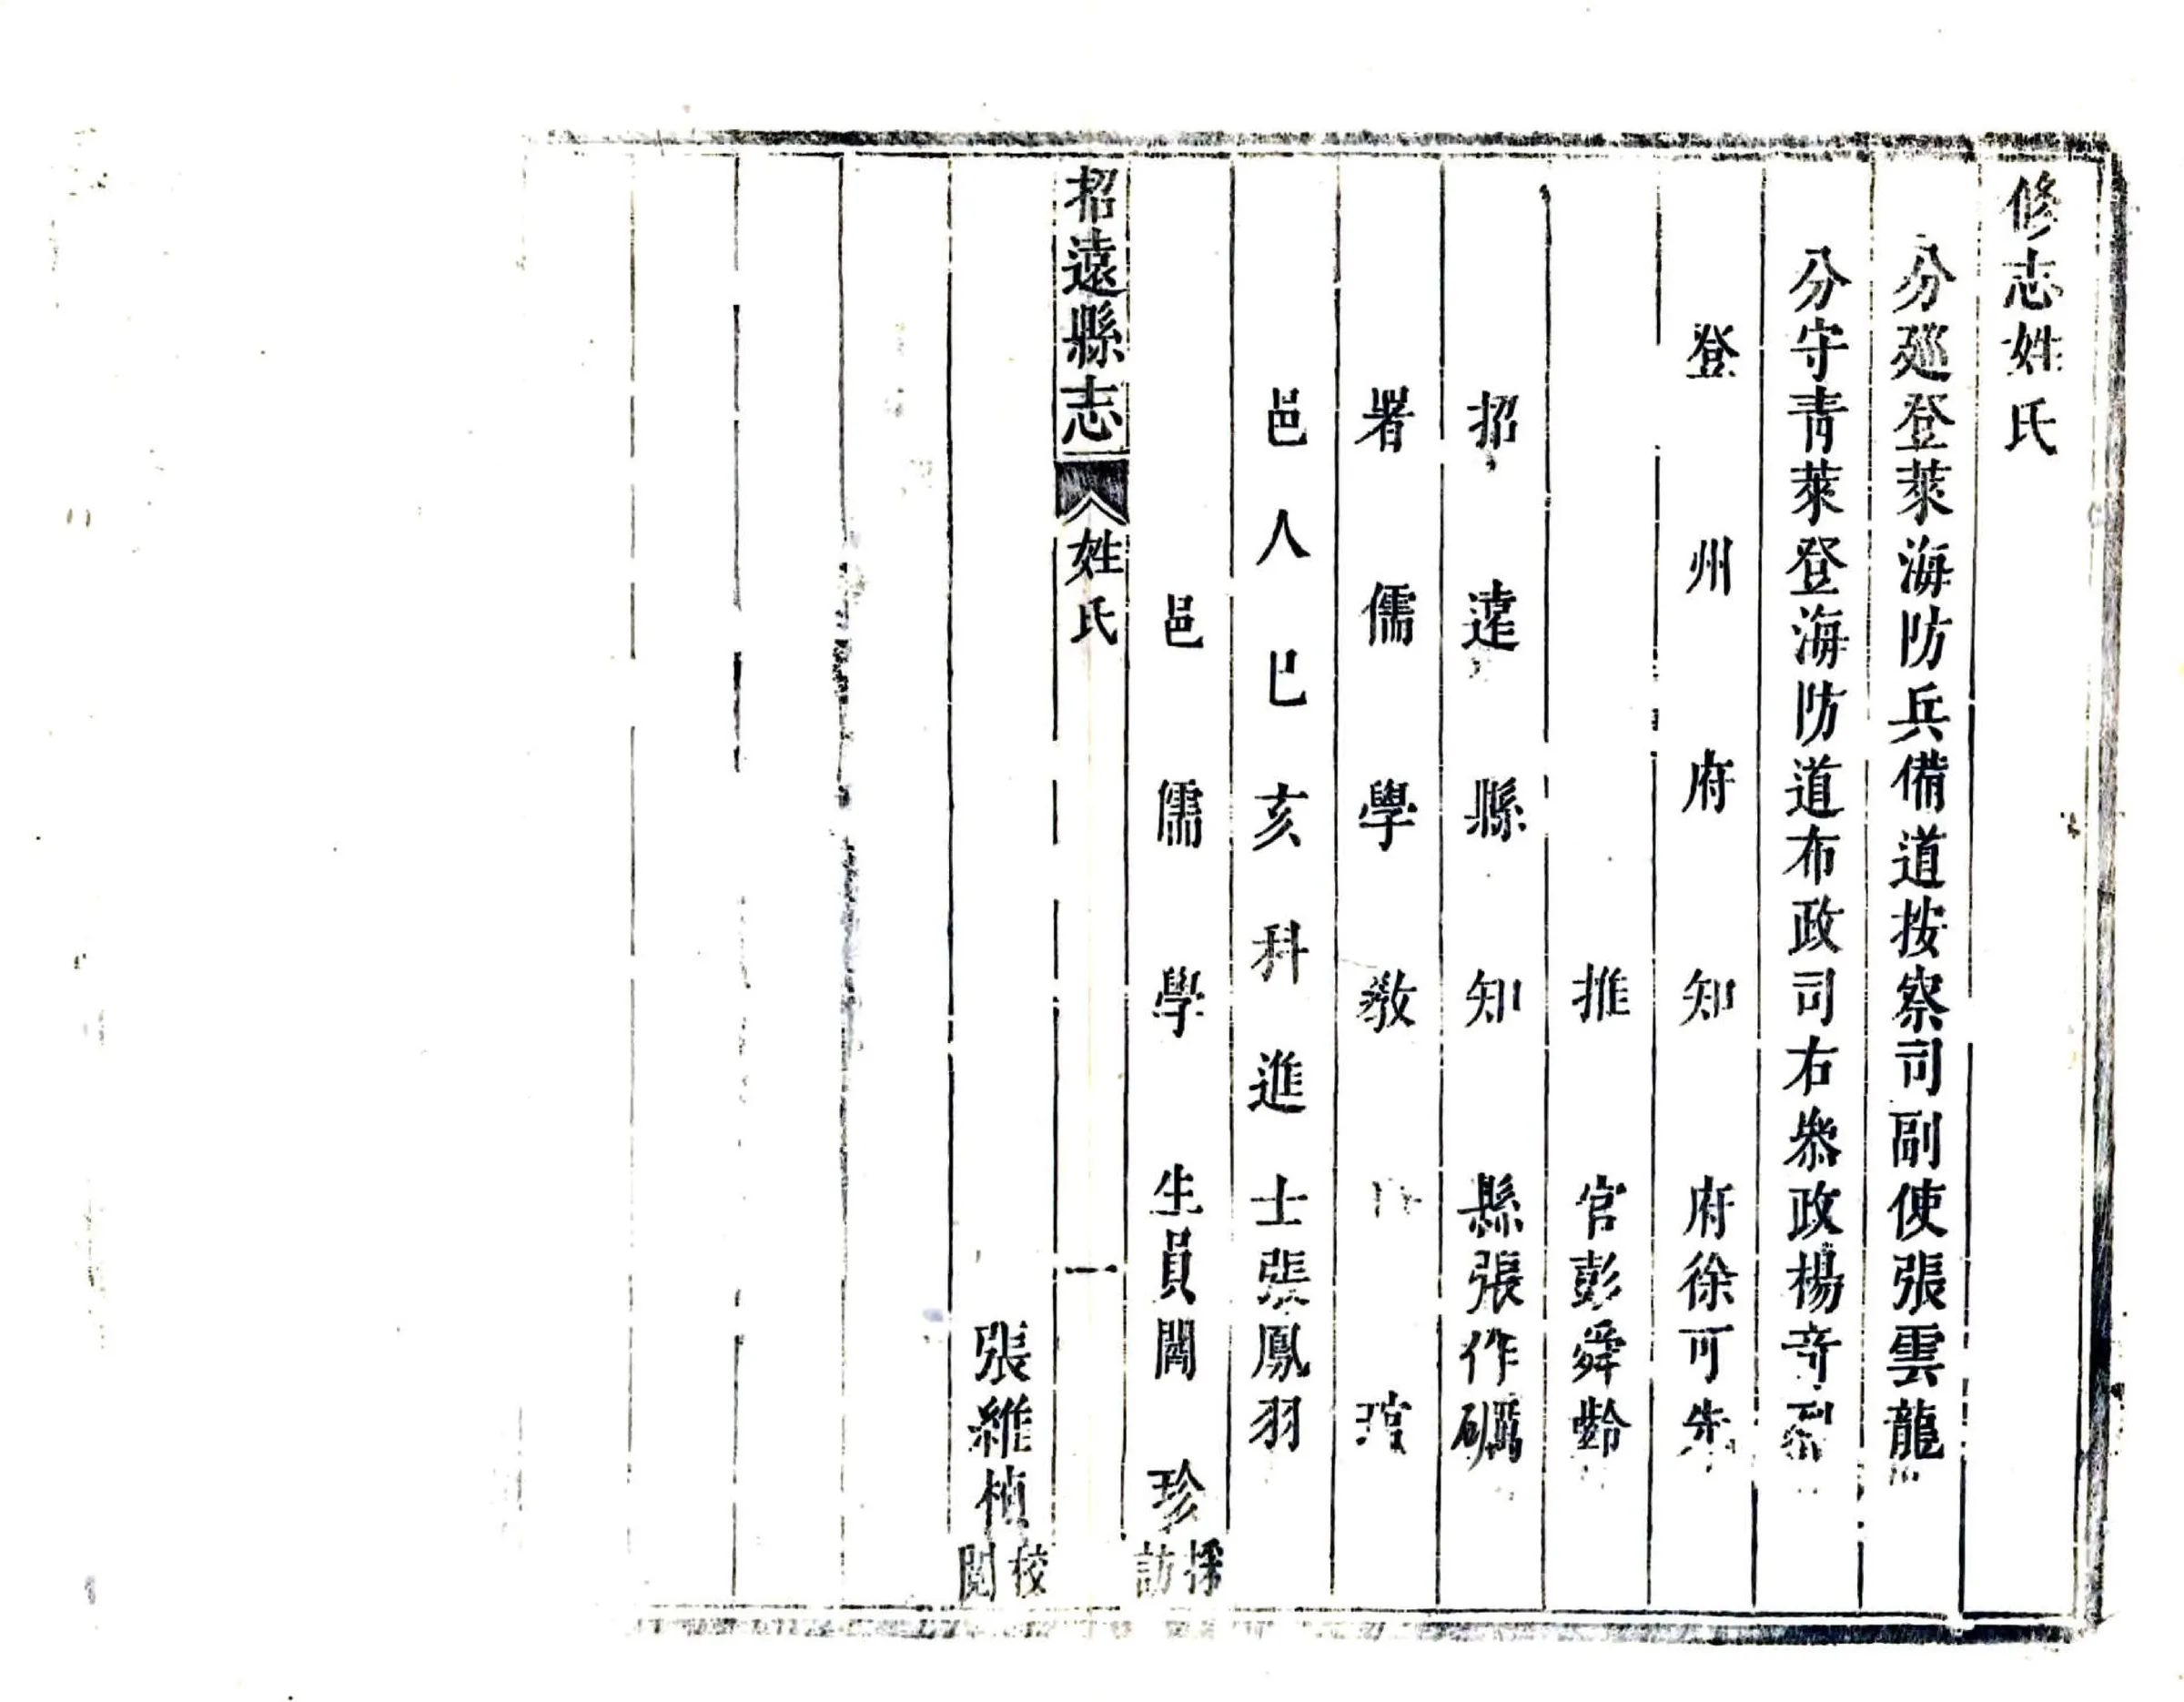 修志姓氏
分廵登萊海防兵備道按察司副使張雲龍
分守青萊登海防道布政司右叅政楊奇烈
登州府知府徐可先
推官彭舜齡
招遠縣知縣張作礪
署儒學教
邑人巳亥科進士張鳳羽
邑儒學生員閻珍採訪
招遠縣志 姓氏 一
張維楨校閱